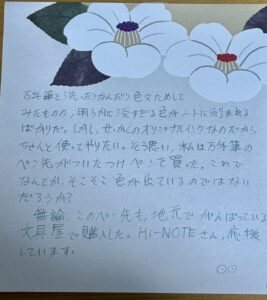 万年筆を洗ったりなんだり色々ためして
みたものの、明らかに淡すぎる色がノートに刻まれる
ばかりだ。しかし、せっかくのオリジナルインクなのだから
ちゃんと使ってやりたい。そう思い、私は万年筆の
ペン先がついたつけペンを買った。これで
なんとか、そこそこ色が出ているのではない
だろうか？
無論、このペン先も、地元でがんばっている
文具屋で購入した。Hi-NOTEさん、応援
しています。
○○